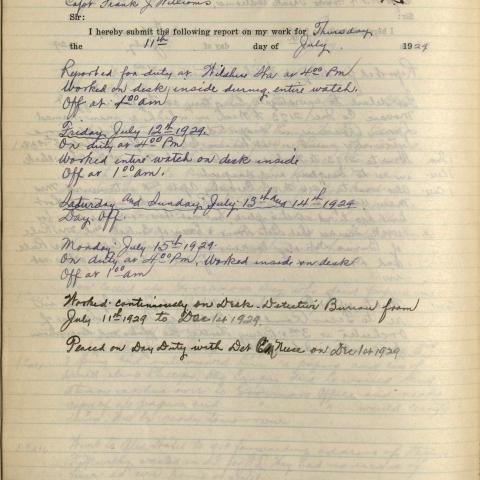 Capt Frank J Williams
Sir:
I hereby submit the following report on my work for Thursday
the 11th day of July 1929
Reported for duty at Wilshire Sta at 4:00 Pm
Worked on desk inside during entire watch.
Off at 1:00 am
Friday July 12th 1929.
On duty at 4:00 PM
Worked entire watch on desk inside
Off at 1:00 am.
Saturday and Sunday July 13th and 14th 1929
Day Off.
Monday July 15th 1929
On duty at 4:00 Pm, Worked inside on desk
Off at 1:00 am
Worked continuously on Desk. Detective Bureau from
July 11th 1929 to Dec 1st 1929.
Placed on Day Duty with Det on Dec 1st 1929.